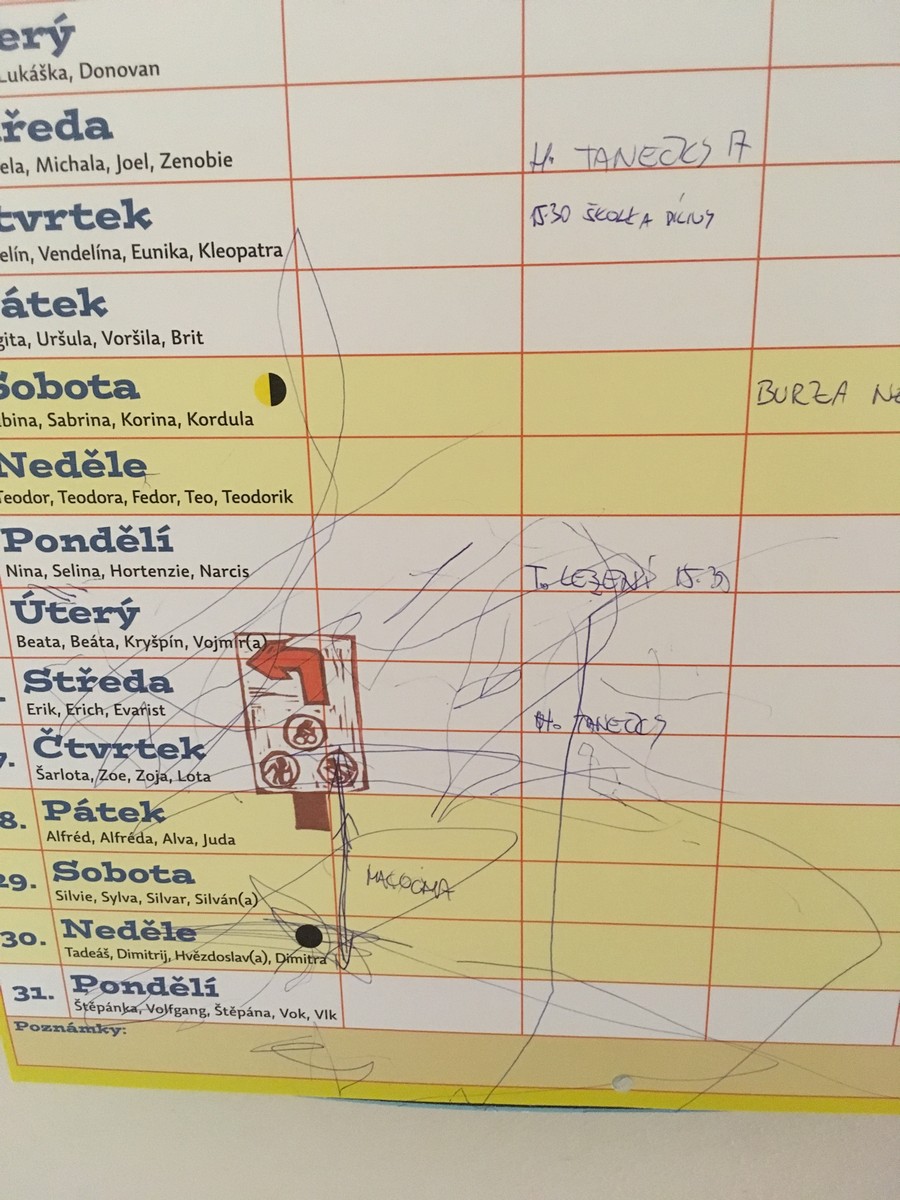 erý
Lukáška, Donovan
ředa
ela, Michala, Joel, Zenobie
H. TANEČKY 17
tvrtek
elín, Vendelína, Eunika, Kleopatra
15.30 ŠKOLKA DÍLNY
átek
gita, Uršula, Voršila, Brit
Sobota
bina, Sabrina, Korina, Kordula
BURZA
Neděle
Teodor, Teodora, Fedor, Teo, Teodorik
Pondělí
Nina, Selina, Hortenzie, Narcis
T. LEZENÍ 15.30
Úterý
Beata, Beáta, Kryšpín, Vojmír(a)
Středa
Erik, Erich, Evarist
H. TANEČKY
7. Čtvrtek
Šarlota, Zoe, Zoja, Lota
8. Pátek
Alfréd, Alfréda, Alva, Juda
29. Sobota
Silvie, Sylva, Silvar, Silván(a)
30. Neděle
Tadeáš, Dimitrij, Hvězdoslav(a), Dimitra
31. Pondělí
Štěpánka, Volfgang, Štěpána, Vok, Vlk
Poznámky: